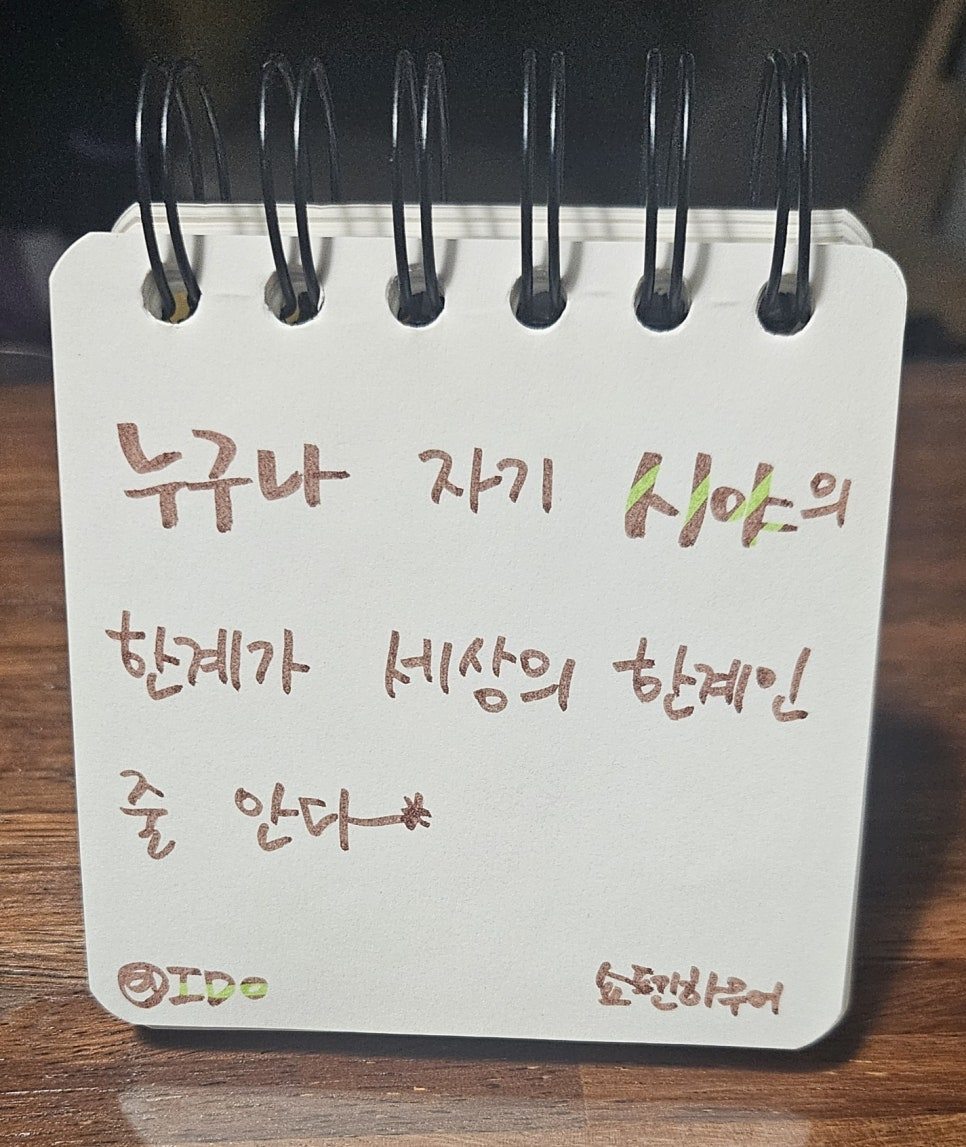 누구나 자기 시야의
한계가 세상의 한계인
줄 안다
@IDo
쇼펜하우어